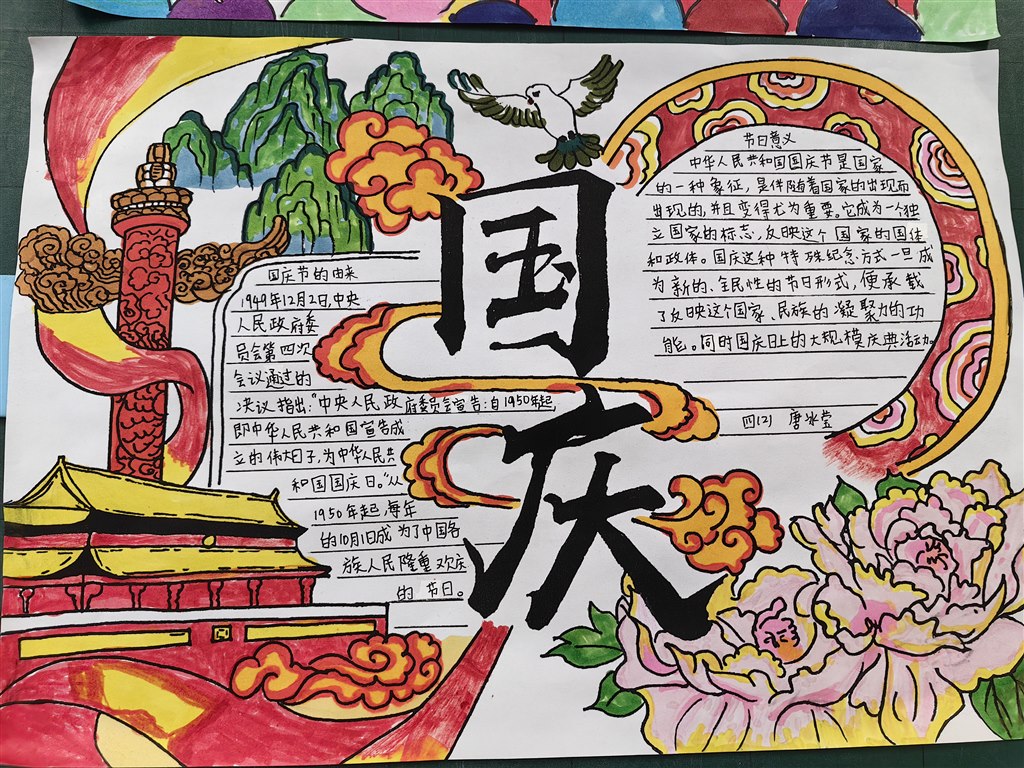 国庆
国庆节的由来
1949年12月2日,中央
人民政府委
员会第四次
会议通过的
决议指出:“中央人民政府委员会宣告:自1950年起,
即中华人民共和国宣告成
立的伟大日子,为中华人民共
和国国庆日。”从
1950年起,每年
的10月1日成为了中国各
族人民隆重欢庆
的节日。
节日意义
中华人民共和国国庆节是国家
的一种象征,是伴随着国家的出现而
出现的,并且变得尤为重要。它成为一个独
立国家的标志,反映这个国家的国体
和政体。国庆这种特殊纪念方式一旦成
为新的、全民性的节日形式,便承载
了反映这个国家、民族的凝聚力的功
能。同时国庆日上的大规模庆典活动。
四(2) 唐冰莹